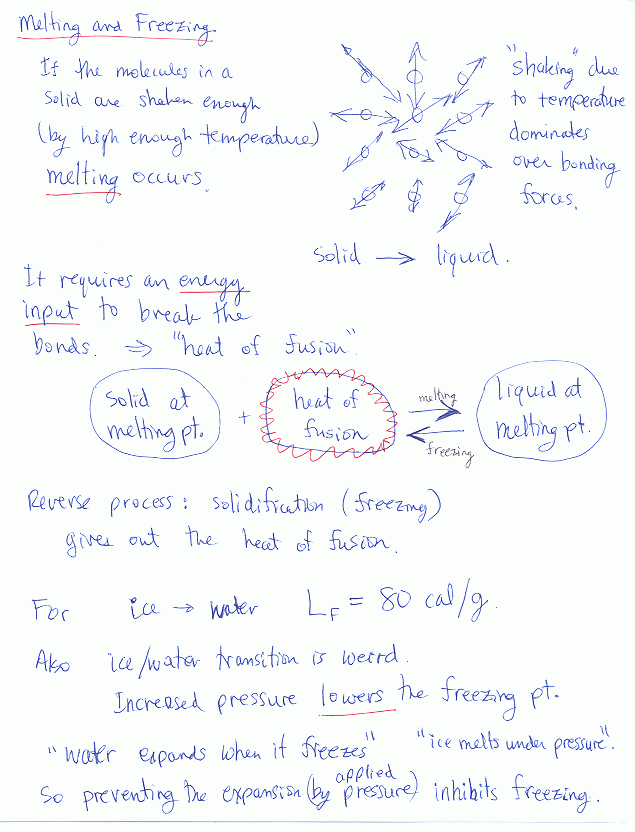 Melting and Freezing
If the molecules in a
solid are shaken enough
(by high enough temperature)
melting occurs.
"shaking" due
to temperature
dominates
over bonding
forces.
solid → liquid.
It requires an energy
input to break the
bonds. ⇒ "heat of fusion".
solid at
melting pt.
+
heat of
fusion
melting
freezing
liquid at
melting pt.
Reverse process: solidification (freezing)
gives out the heat of fusion.
For ice → water L_F = 80 cal/g.
Also ice/water transition is weird.
Increased pressure lowers the freezing pt.
"water expands when it freezes" "ice melts under pressure".
So preventing the expansion (by applied pressure) inhibits freezing.